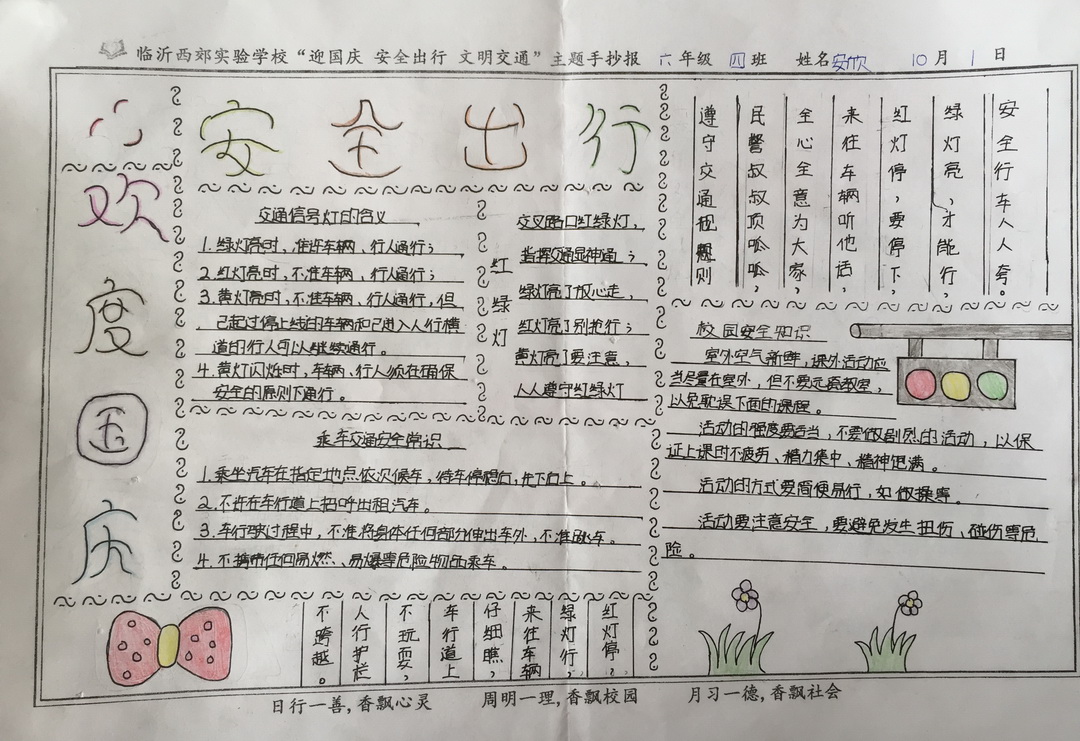 临沂西郊实验学校“迎国庆 安全出行 文明交通”主题手抄报 六年级 四班 姓名安欣 10月1日
安全出行
欢度国庆
交通信号灯的含义
1.绿灯亮时,准许车辆、行人通行;
2.红灯亮时,不准车辆、行人通行;
3.黄灯亮时,不准车辆、行人通行,但
已超过停止线的车辆和已进入人行横
道的行人可以继续通行。
4.黄灯闪烁时,车辆、行人须在确保
安全的原则下通行。
红绿灯
交叉路口红绿灯,
指挥交通显神通;
绿灯亮了放心走,
红灯亮了别抢行;
黄灯亮了要注意,
人人遵守红绿灯
安全行车人人夸。
绿灯亮,才能行,
红灯停,要停下,
来往车辆听他话,
全心全意为大家,
民警叔叔顶呱呱,
遵守交通规则
校园安全知识
室外空气新鲜,课外活动应
当尽量在室外,但不要远离教室,
以免耽误下面的课程。
活动的强度要适当,不要做剧烈的活动,以保
证上课时不疲劳、精力集中、精神饱满。
活动的方式要简便易行,如做操等。
活动要注意安全,要避免发生扭伤、碰伤等危
险。
乘车交通安全常识
1.乘坐汽车在指定地点依次候车,待车停稳后,先下后上。
2.不许在车行道上招呼出租汽车。
3.车行驶过程中,不准将身体任何部分伸出车外,不准跳车。
4.不携带任何易燃、易爆等危险物品乘车。
红灯停,
绿灯行,
来往车辆
仔细瞧,
车行道上
不玩耍,
人行护栏
不跨越。
日行一善,香飘心灵 周明一理,香飘校园 月习一德,香飘社会